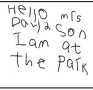 Hello mrs
Davidson
I am at
the park